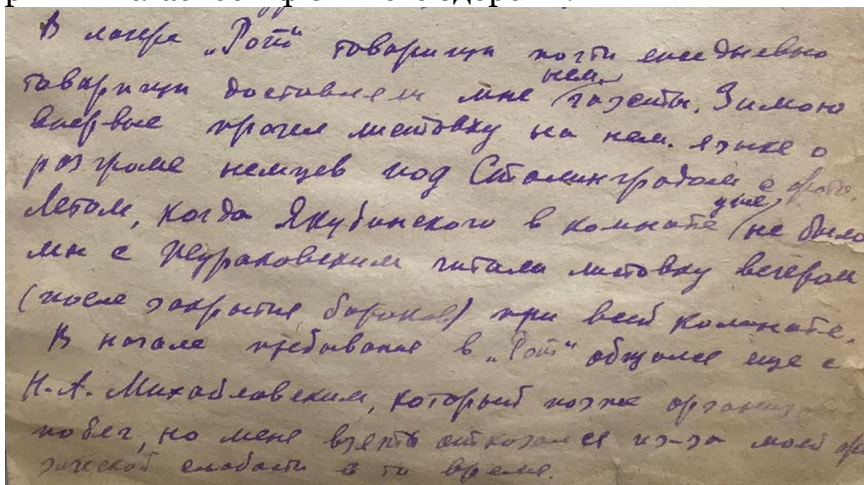 В лагере „Рот" товарищи почти ежедневно
товарищи доставляли мне нем. газеты. Зимою
впервые прочел листовку на нем. языке о
разгроме немцев под Сталинградом с фото.
Летом, когда Якубинского в комнате уже не было
мы с Жураковским читали листовку вечером
(после закрытия бараков) при всей комнате.
В начале пребывания в „Рот" общался еще с
Н.А. Михайловским, который позже организо
побег, но мене взять отказался из-за моей фи
зической слабости в то время.